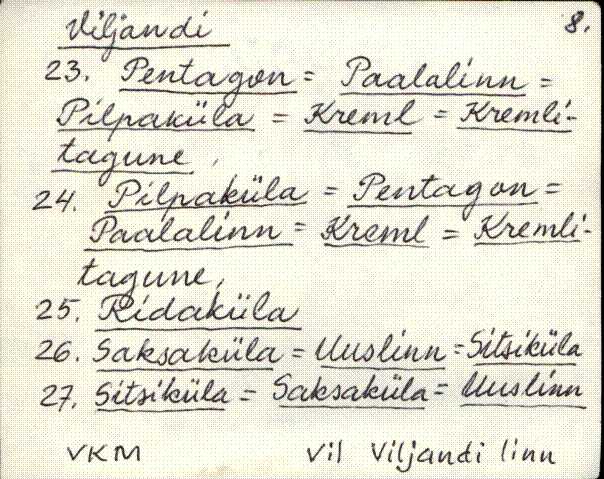 Viljandi 8.
23. Pentagon = Paalalinn =
Pilpaküla = Kreml = Kremli-
tagune,
24. Pilpaküla = Pentagon =
Paalalinn = Kreml = Kremli-
tagune,
25. Ridaküla
26. Saksaküla = Uuslinn = Sitsiküla
27. Sitsiküla = Saksaküla = Uuslinn
VKM Vil Viljandi linn